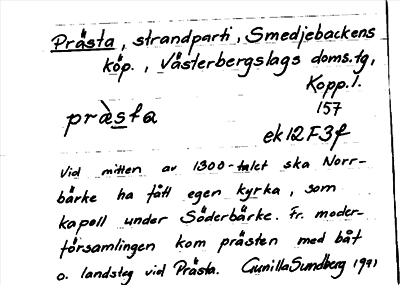 Prästa, strandparti, Smedjebackens
köp., Västerbergslags doms.tg,
Kopp.l.
157
præ̀sta
ek 12 F 3f
Vid mitten av 1300-talet ska Norr-
bärke ha fått egen kyrka, som
kapell under Söderbärke. Fr. moder-
församlingen kom prästen med båt
o. landsteg vid Prästa. Gunilla Sundberg 1991